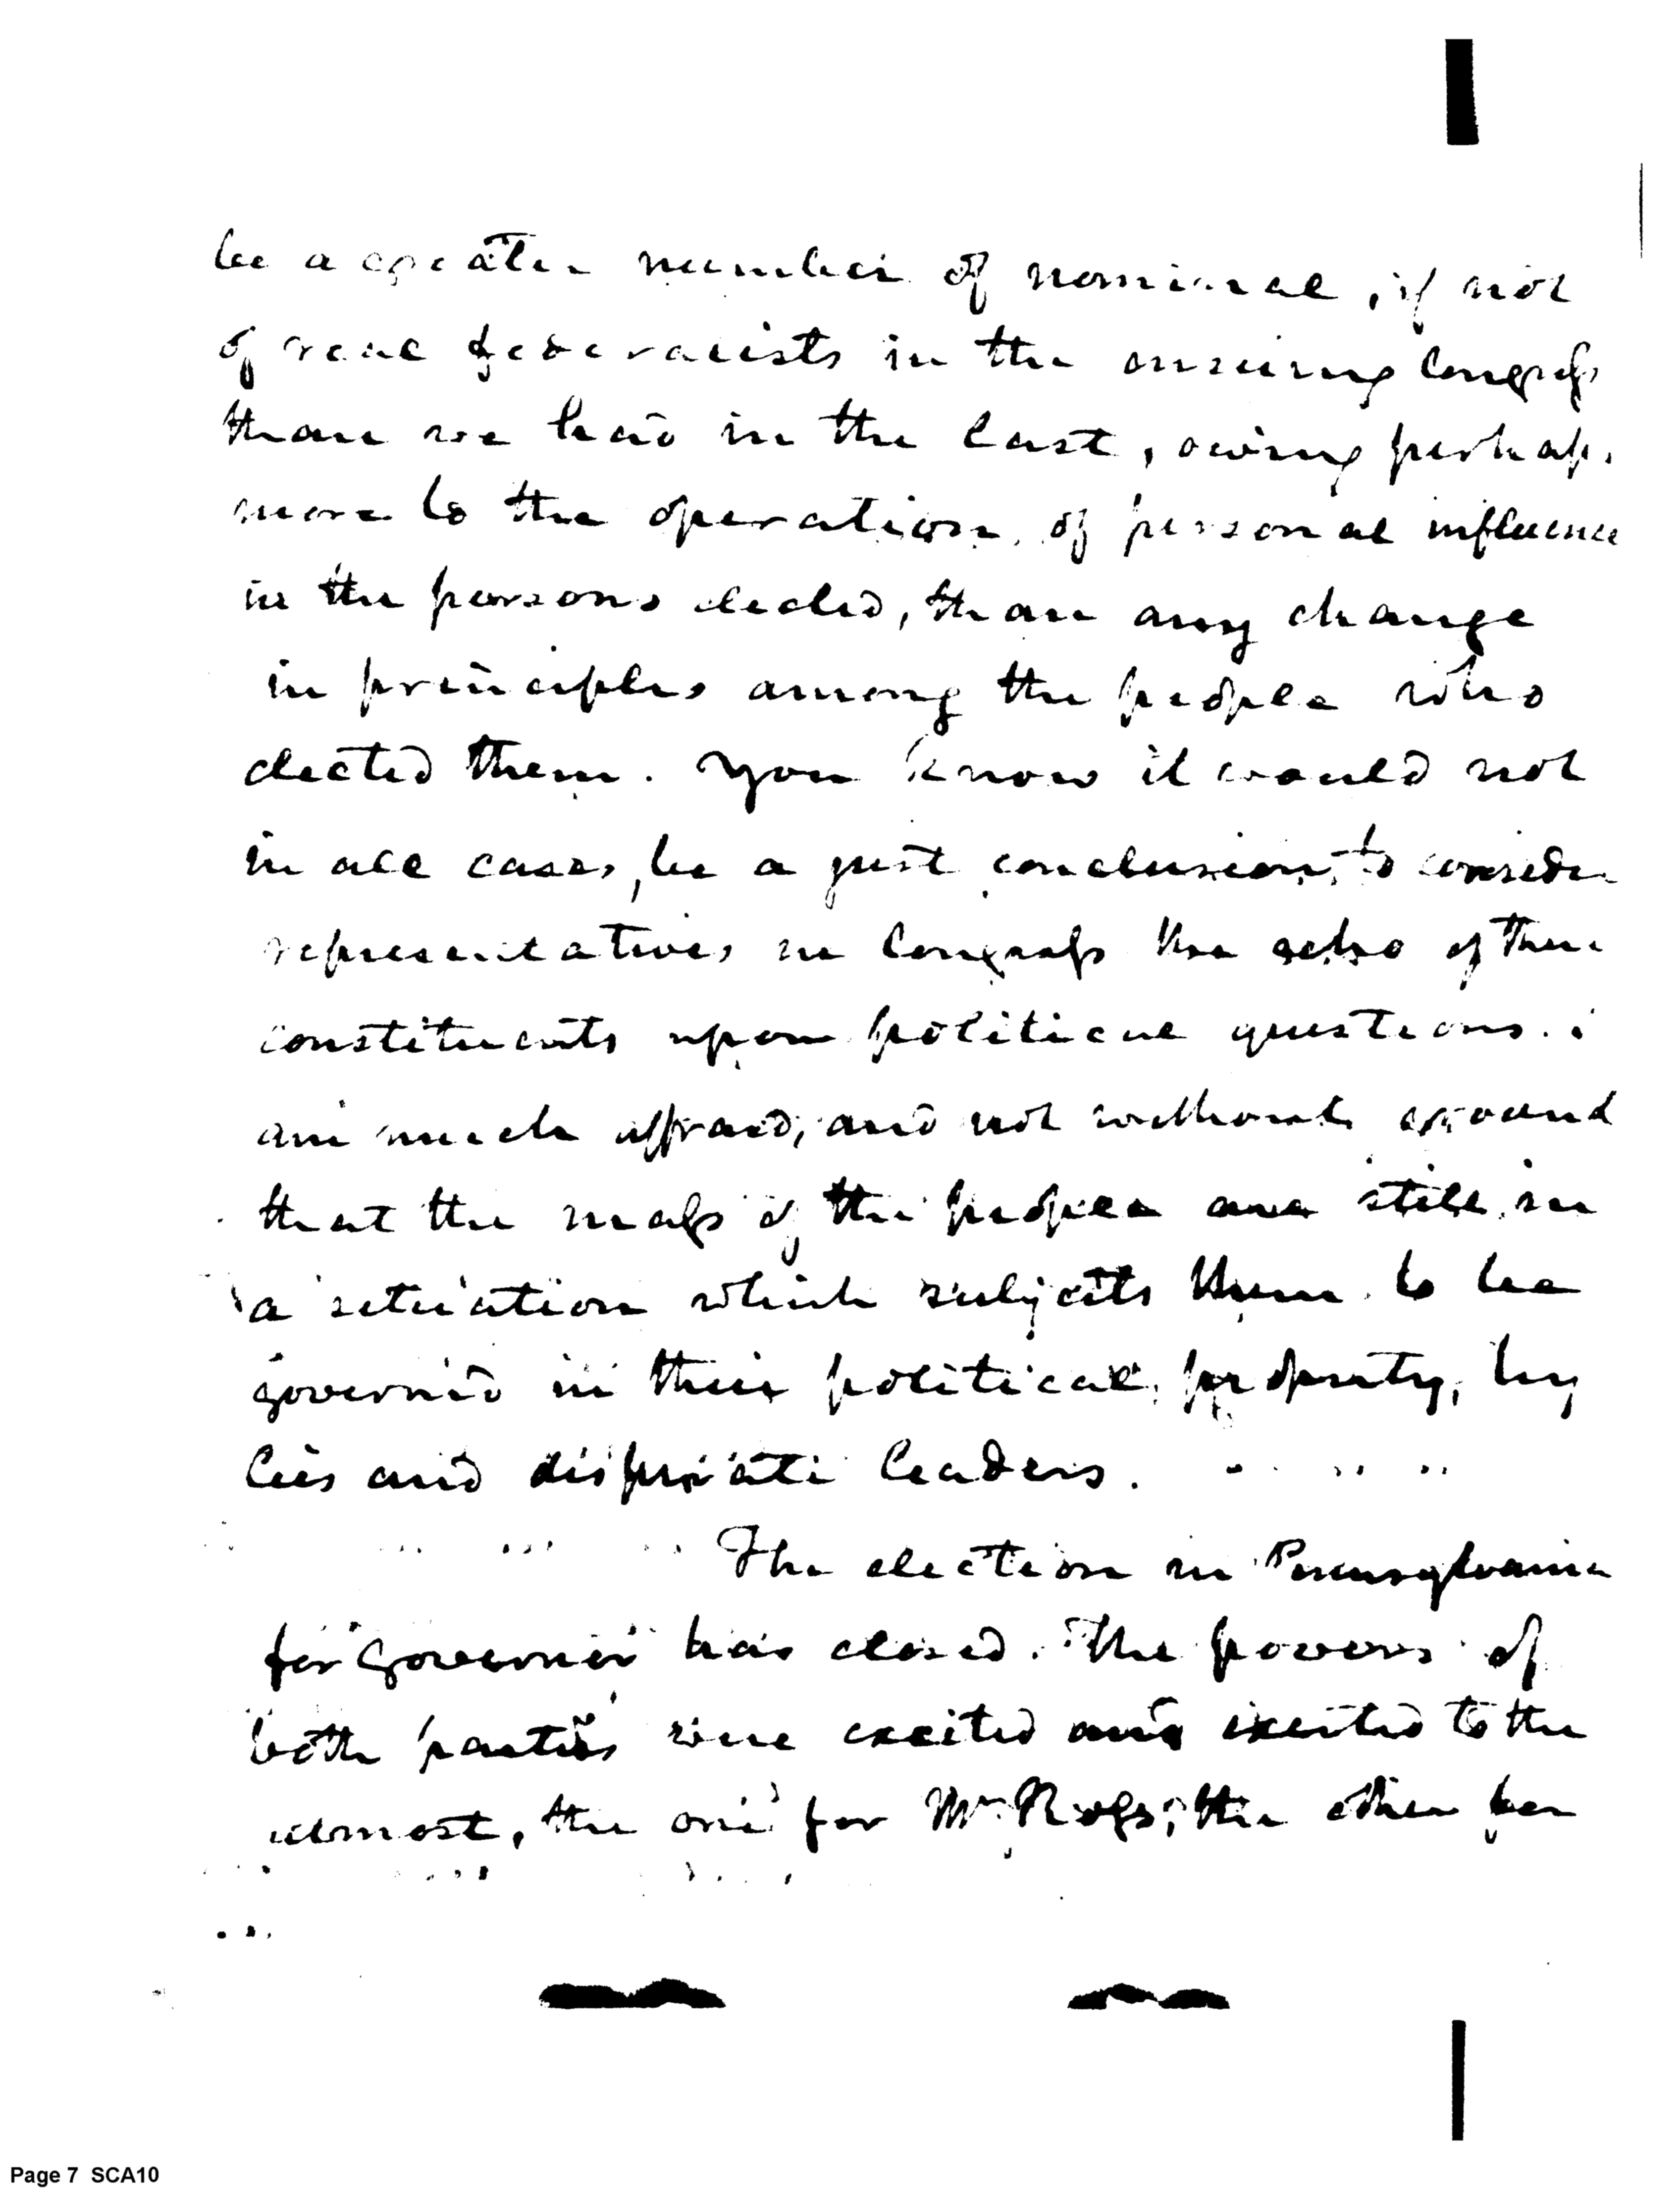 be a greater number of nominal, if not
of real federalists in the ensuing Congress
than we had in the last, owing perhaps
more to the operation of personal influence
in the persons elected, than any change
in principles among the people who
elected them. You know it would not
in all cases, be a just conclusion, to consider
representatives in Congress the echo of their
constituents upon political questions. i
am much affraid, and not without ground
that the mass of the people are still in
a situation which subjects them to be
governed in their political property, by
lies and desperate leaders. . . .
. . . . The election in Pennsylvania
for Governor has closed. The powers of
both parties were excited and exerted to the
utmost, the one for Mr Ross, the other for
Page 7 SCA10